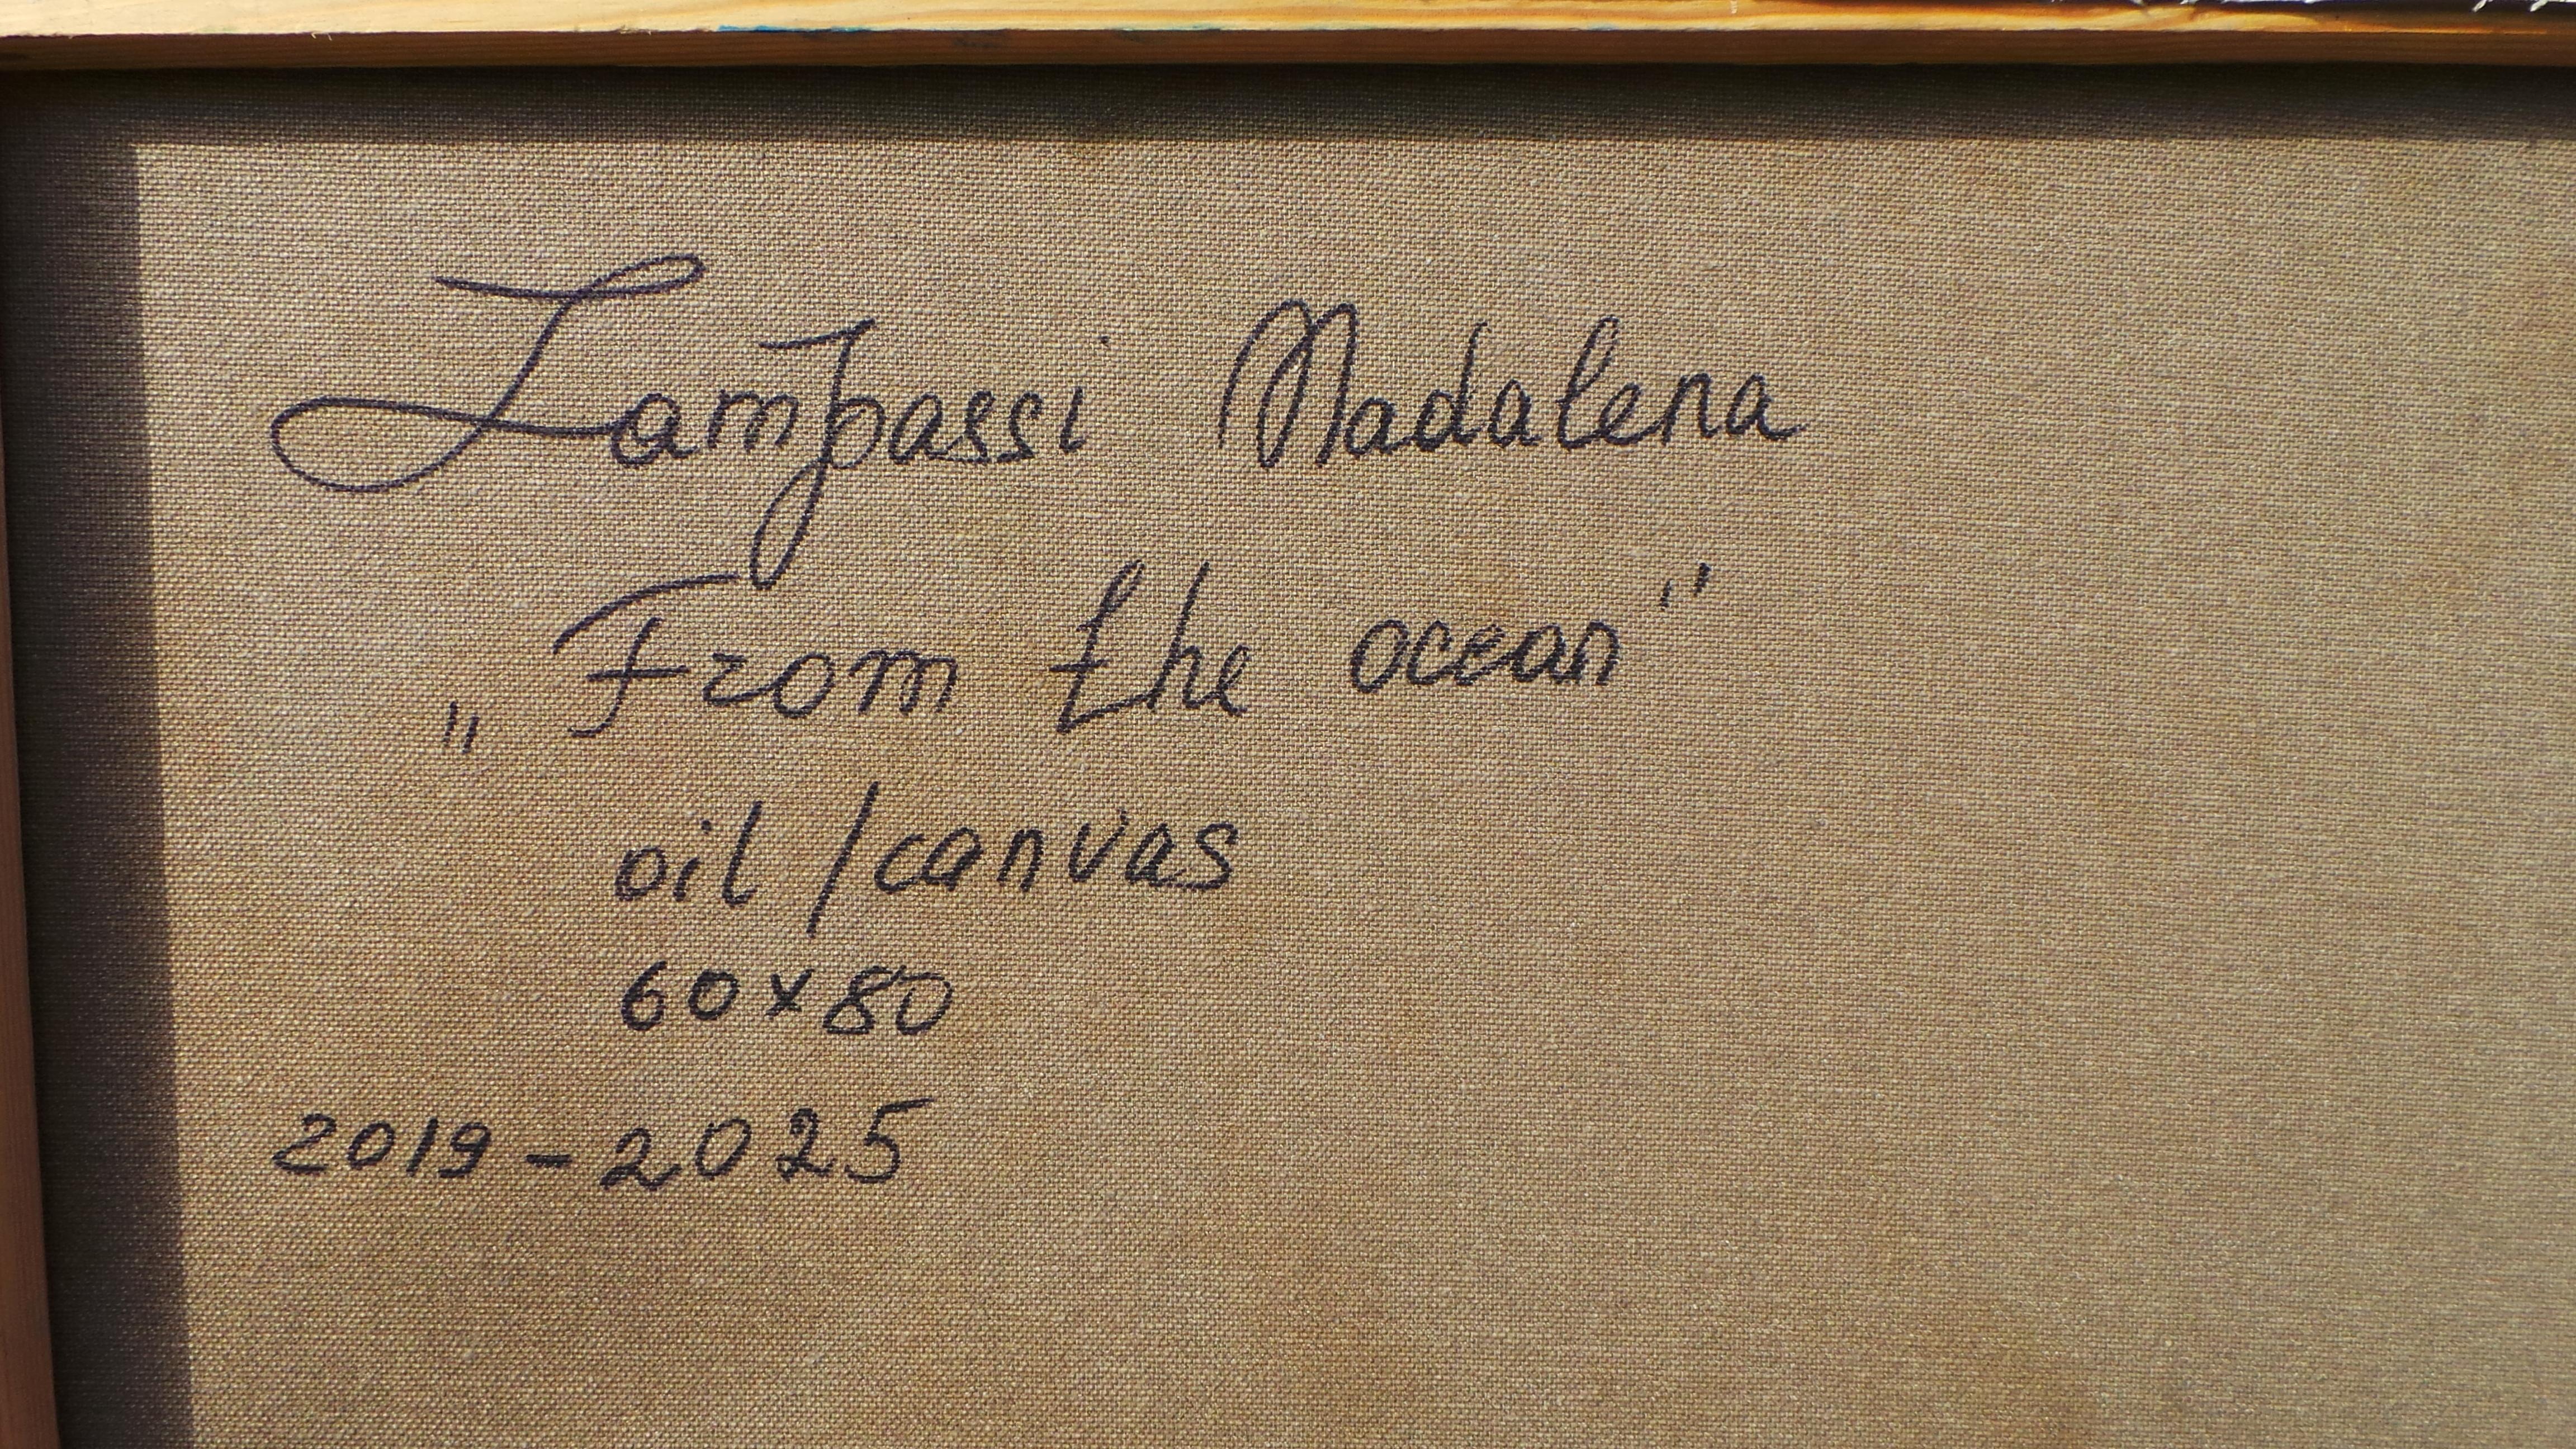 Lampassi Madalena
„From the ocean"
oil/canvas
60x80
2019-2025